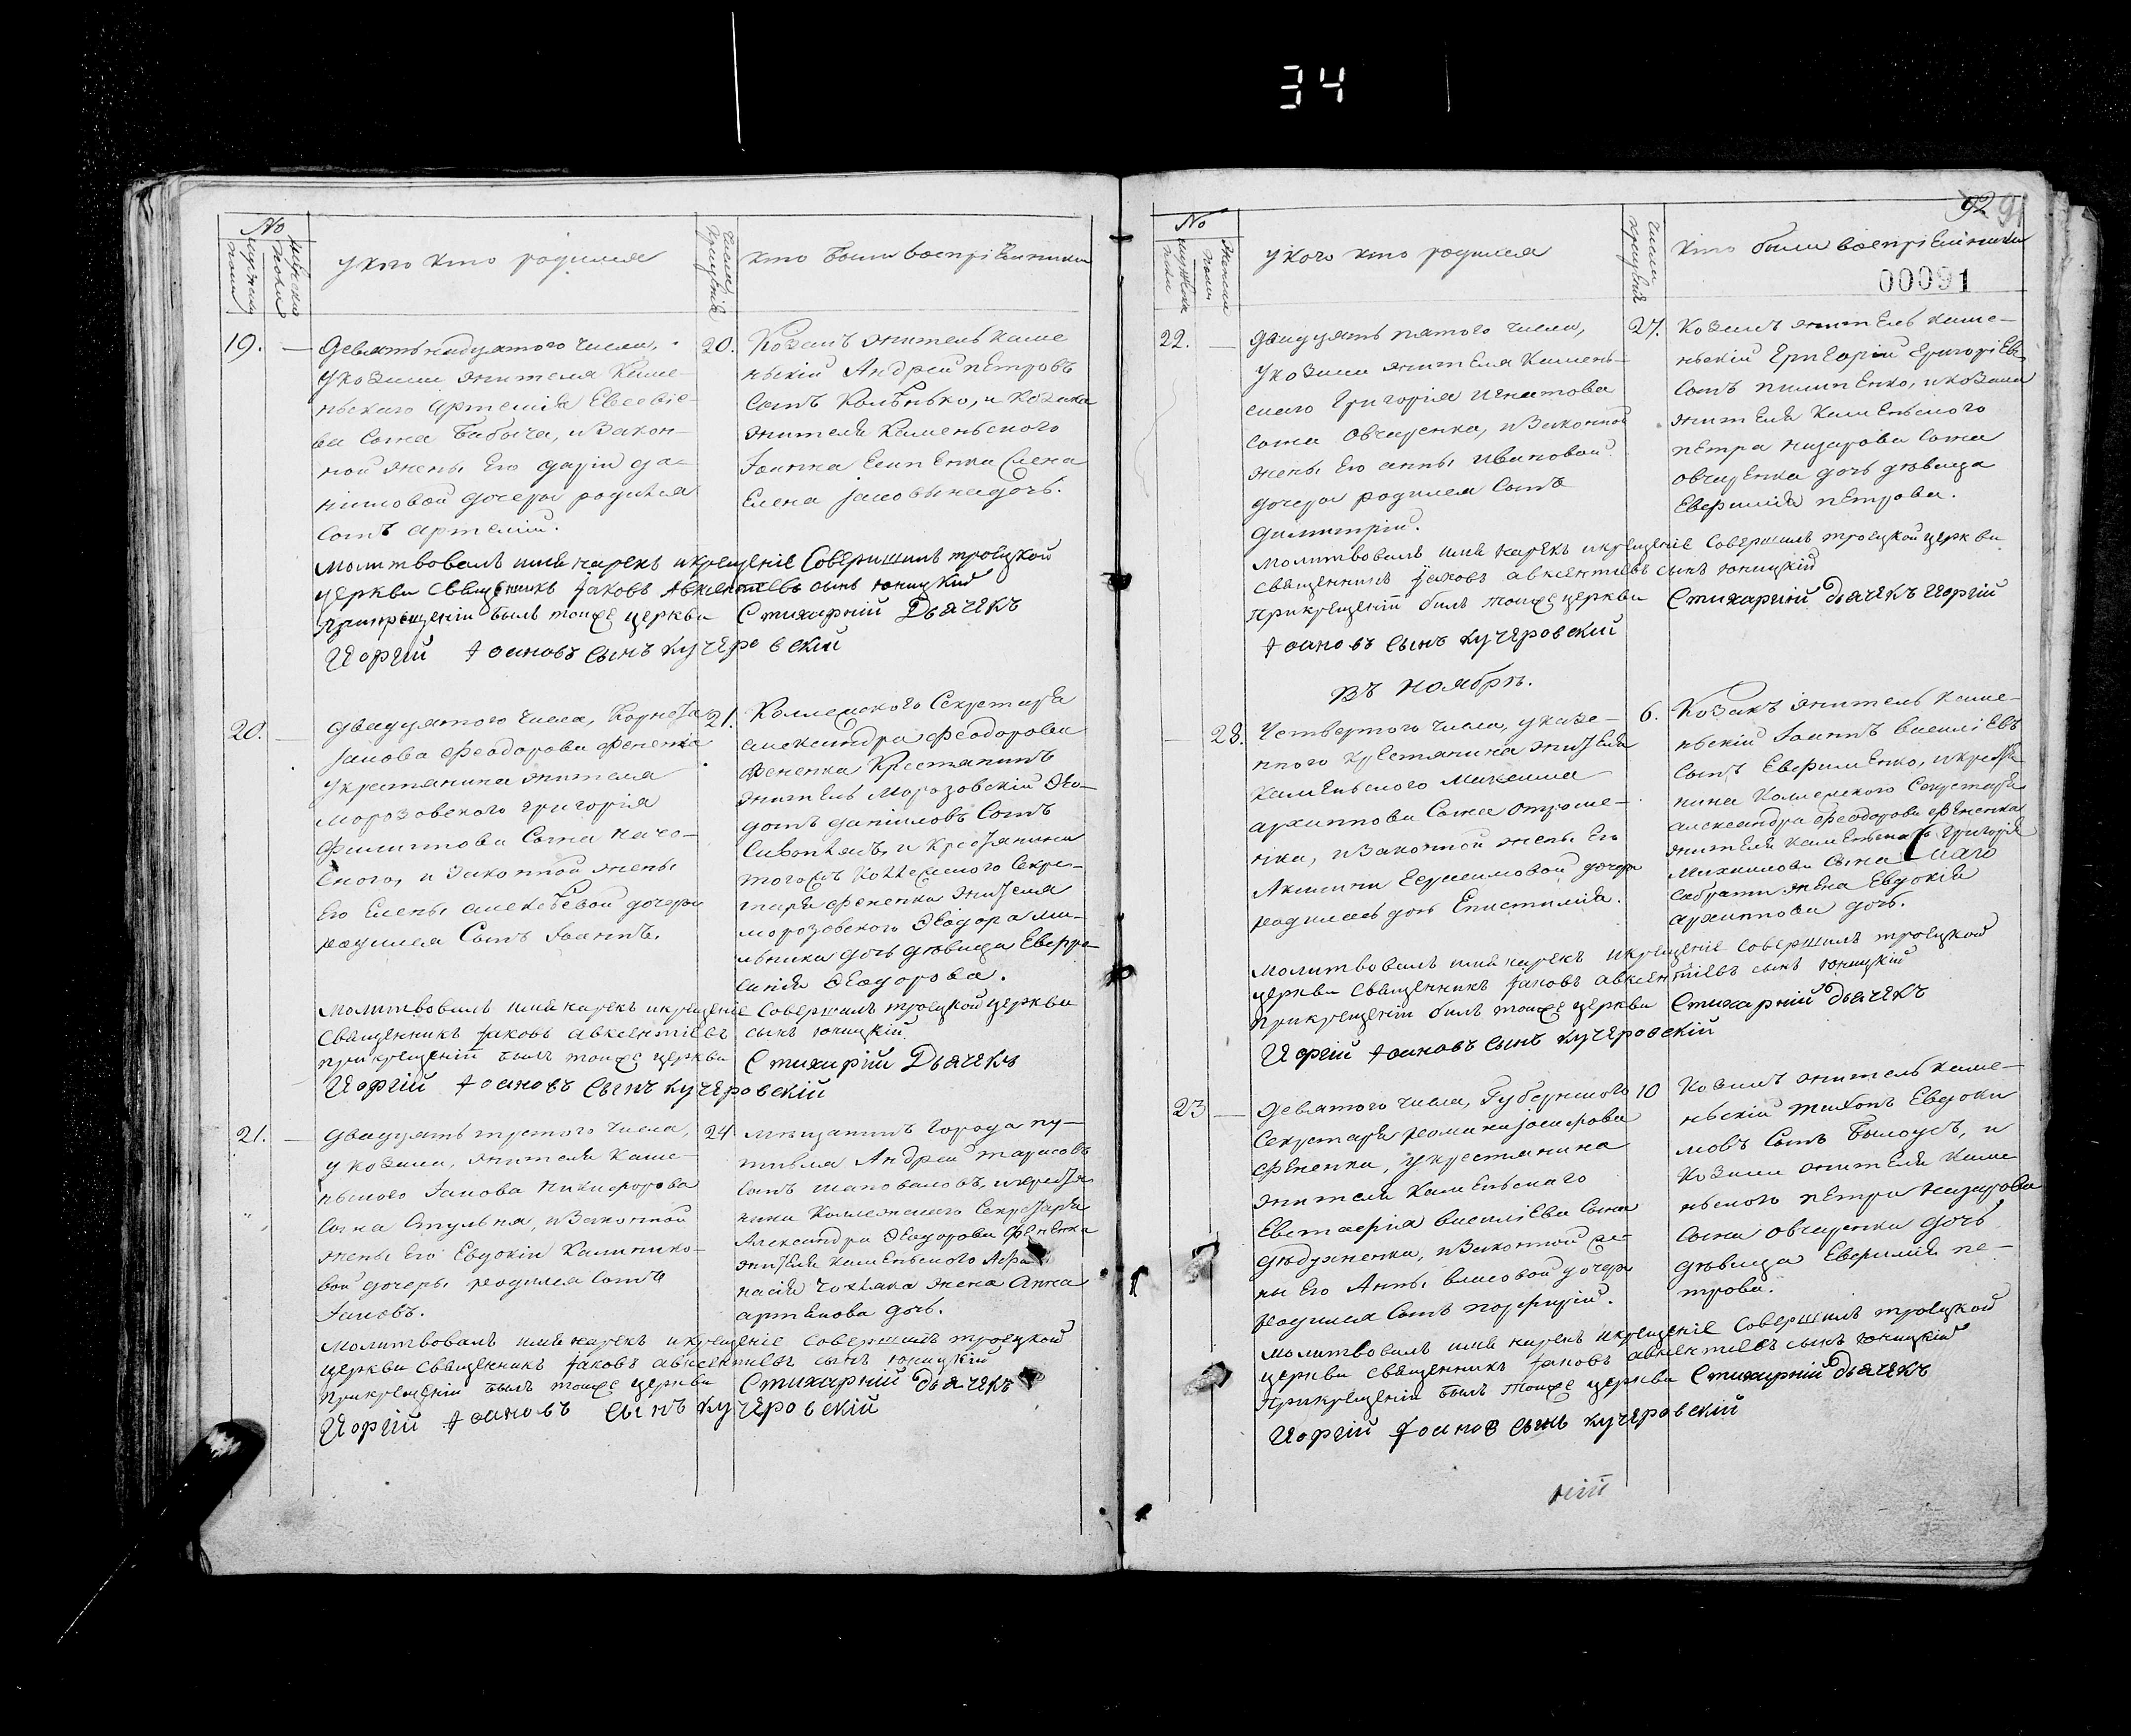 34
№
мужска
пола
женска
пола
у кого кто родился
числа
крещенія
кто были воспріемники
19.
Девятьнадцятого числа,
у козака жителя Каме-
ньского Артемія Евсевіе-
ва сына Бабыча, и закон-
ной жены его Даріи Да-
ниловой дочери родился
сынъ Артемій.
20.
Козакъ житель каме
ньскій Андрей Петровъ
сынъ Колѣнько, и козака
жителя Каменьского
Іоанна
Елена Іаковлева дочь.
Молитвовалъ имя нарекъ и крещеніе совершилъ троецкой
церкви священникъ Іаковъ Авксентіевъ сынъ Юницкій
при крещеніи былъ тоиже церкви Стихарній Дьячекъ
Иоргій Іоановъ сынъ Кучеровскій
20.
Двадцятого числа, Корнета
Іакова Феодорова Фененка
у крестянина жителя
Морозовского Григорія
Филиппова сына
и законной жены
его Елены Алексѣевой дочери
родился сынъ Іоаннъ.
21.
Коллежского Секретаря
Александра Феодорова
Фененка Крестянинъ
житель Морозовскій Ѳео-
дотъ Даніиловъ сынъ
и крестянина
тогожъ Коллежского Секре-
таря Фененка жителя
Морозовского Ѳеодора Ми-
льника дочь дѣвица Евфро-
синія Ѳеодорова.
Молитвовалъ имя нарекъ и крещеніе совершилъ троецкой церкви
священникъ Іаковъ Авксентіевъ сынъ Юницкій
при крещеніи былъ тоиже церкви Стихарній Дьячекъ
Иоргій Іоановъ сынъ Кучеровскій
21.
Двадцять третого числа,
у козака, жителя Каме-
ньского Іакова Никифорова
сына Стульня, и законной
жены его Евдокіи Калинико-
вой дочери родился сынъ
Іаковъ.
24
Мѣщанинъ города Пу-
тивля Андрей Тарасовъ
сынъ Шаповаловъ, и крестя
нина Коллежского Секретаря
Александра Ѳеодорова Фененка
жителя Каменьского Афа
насія Чохлака жена Анна
Артемова дочь.
Молитвовалъ имя нарекъ и крещеніе совершилъ троецкой
церкви священникъ Іаковъ Авксентіевъ сынъ Юницкій
при крещеніи былъ тоиже церкви Стихарній Дьячекъ
Иоргій Іоановъ сынъ Кучеровскій
92 91
№
мужска
пола
женска
пола
у кого кто родился
числа
крещенія
кто были воспріемники
00091
22.
Двадцять пятого числа,
у козака жителя Камень-
ского Григорія Игнатова
сына Овчаренка, и законной
жены его Анны Ивановой
дочери родился сынъ
Димитрій.
27.
Козакъ житель каме-
ньскій Григорій Григоріевъ
сынъ Пилипенко, и козака
жителя Каменьского
Петра Назарова сына
Овчаренка дочь дѣвица
Евфимія Петрова.
Молитвовалъ имя нарекъ и крещеніе совершилъ троецкой церкви
священникъ Іаковъ Авксентіевъ сынъ Юницкій
при крещеніи былъ тоиже церкви Стихарній Дьячекъ Иоргій
Іоановъ сынъ Кучеровскій
Въ Ноябрѣ.
28.
Четвертого числа, у казе-
нного крестянина жителя
Каменьского Максима
Архипова сына Отроше-
нка, и законной жены его
Аксиніи Герасимовой дочери
родилась дочь Епистимія.
6.
Козакъ житель каме-
ньскій Іоаннъ Василіевъ
сынъ Евфименко, и крестя
нина Коллежского Секретаря
Александра Феодорова Фененка
жителя Каменьского Григорія
Михайлова сына
жена Евдокія
Архипова дочь.
Молитвовалъ имя нарекъ и крещеніе совершилъ троецкой
церкви священникъ Іаковъ Авксентіевъ сынъ Юницкій
при крещеніи былъ тоиже церкви Стихарній Дьячекъ
Иоргій Іоановъ сынъ Кучеровскій
23
Девятого числа, Губернского
Секретаря Романа Іосифова
Фененка, у крестянина
жителя Каменьского
Евстафія Василіева сына
и законной же-
ны его Анны Власовой дочери
родился сынъ Порфирій.
10
Козакъ житель каме-
ньскій Тихонъ Евдоки
мовъ сынъ Бѣлоусъ, и
козака жителя Каме-
ньского Петра Назарова
сына Овчаренка дочь
дѣвица Евфимія Пе-
трова.
Молитвовалъ имя нарекъ и крещеніе совершилъ троецкой
церкви священникъ Іаковъ Авксентіевъ сынъ Юницкій
при крещеніи былъ тоиже церкви Стихарній Дьячекъ
Иоргій Іоанов сынъ Кучеровскій